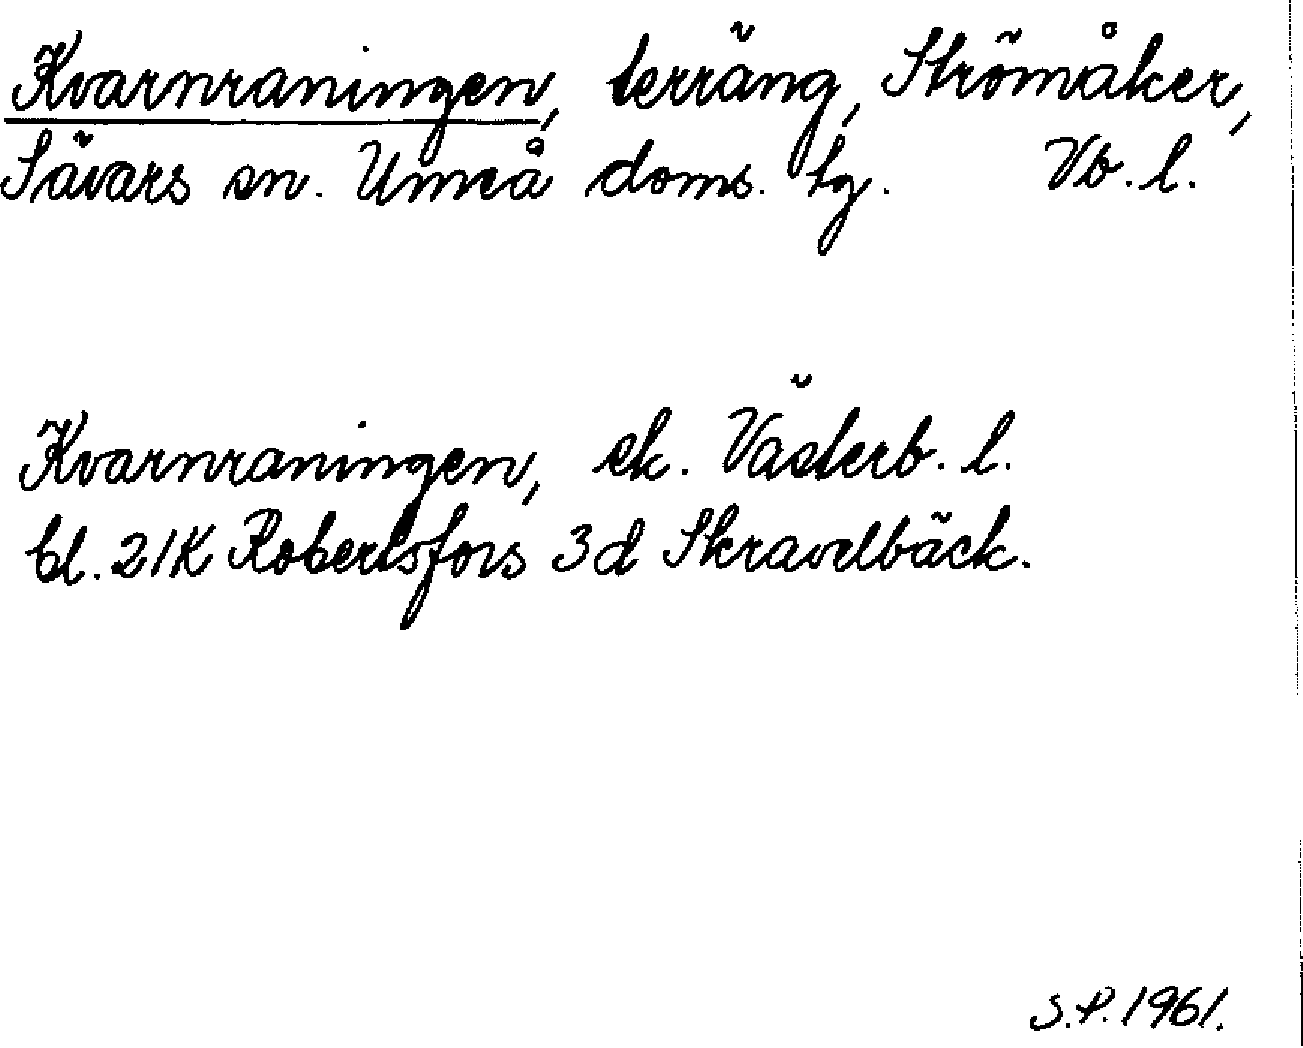 Kvarnraningen, terräng, Strömåker,
Sävars sn. Umeå doms. tg. Vb. l.
Kvarnraningen, ek. Västerb. l.
bl. 21K Robertsfors 3d Skravelbäck.
S.P. 1961.